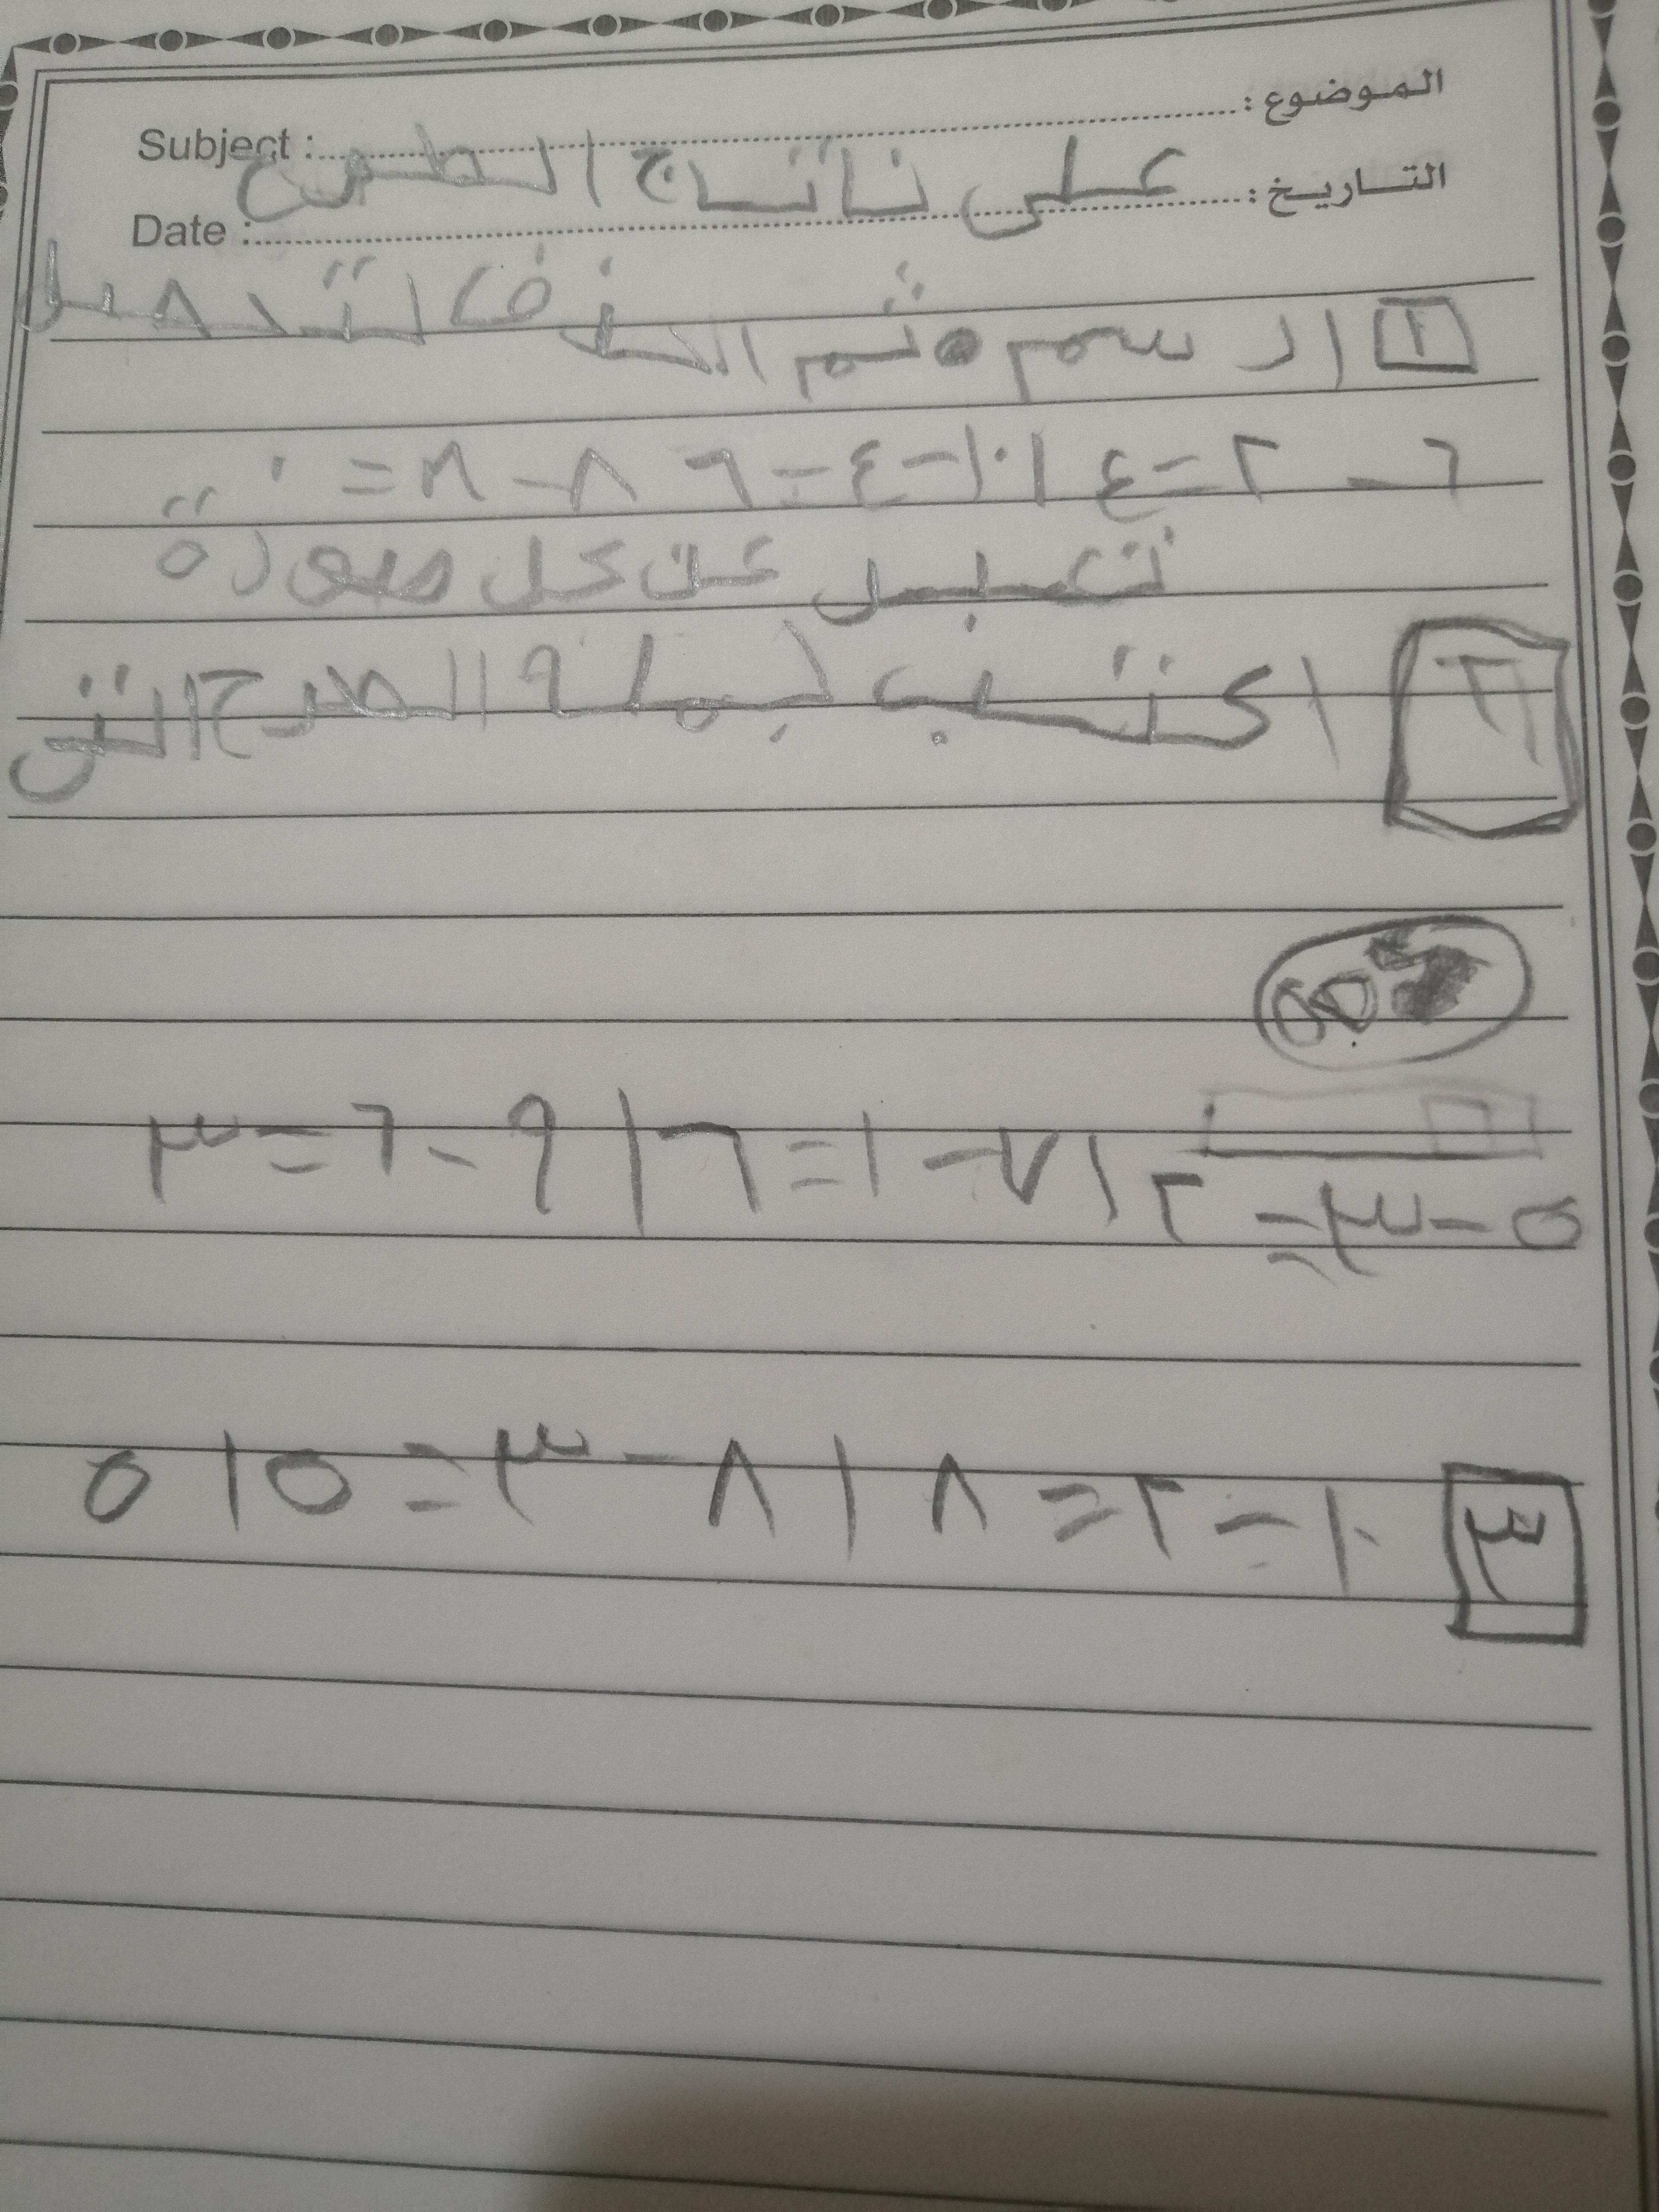 الموضوع :
Subject :
على ناتاج الطرح
التاريخ :
Date :
١ ارسم ثم الدف لتدحيل
٦ - ٢ = ٤ | ١٠ - ٤ = ٦ ٨ - ٨ = ٠
تعبر عن كل صورة
٢ اكتب جملة الطرح التي
٥ - ٣ = ٢ | ٧ - ١ = ٦ | ٩ - ٦ = ٣
٣ ١٠ - ٢ = ٨ | ٨ - ٣ = ٥ | ٥